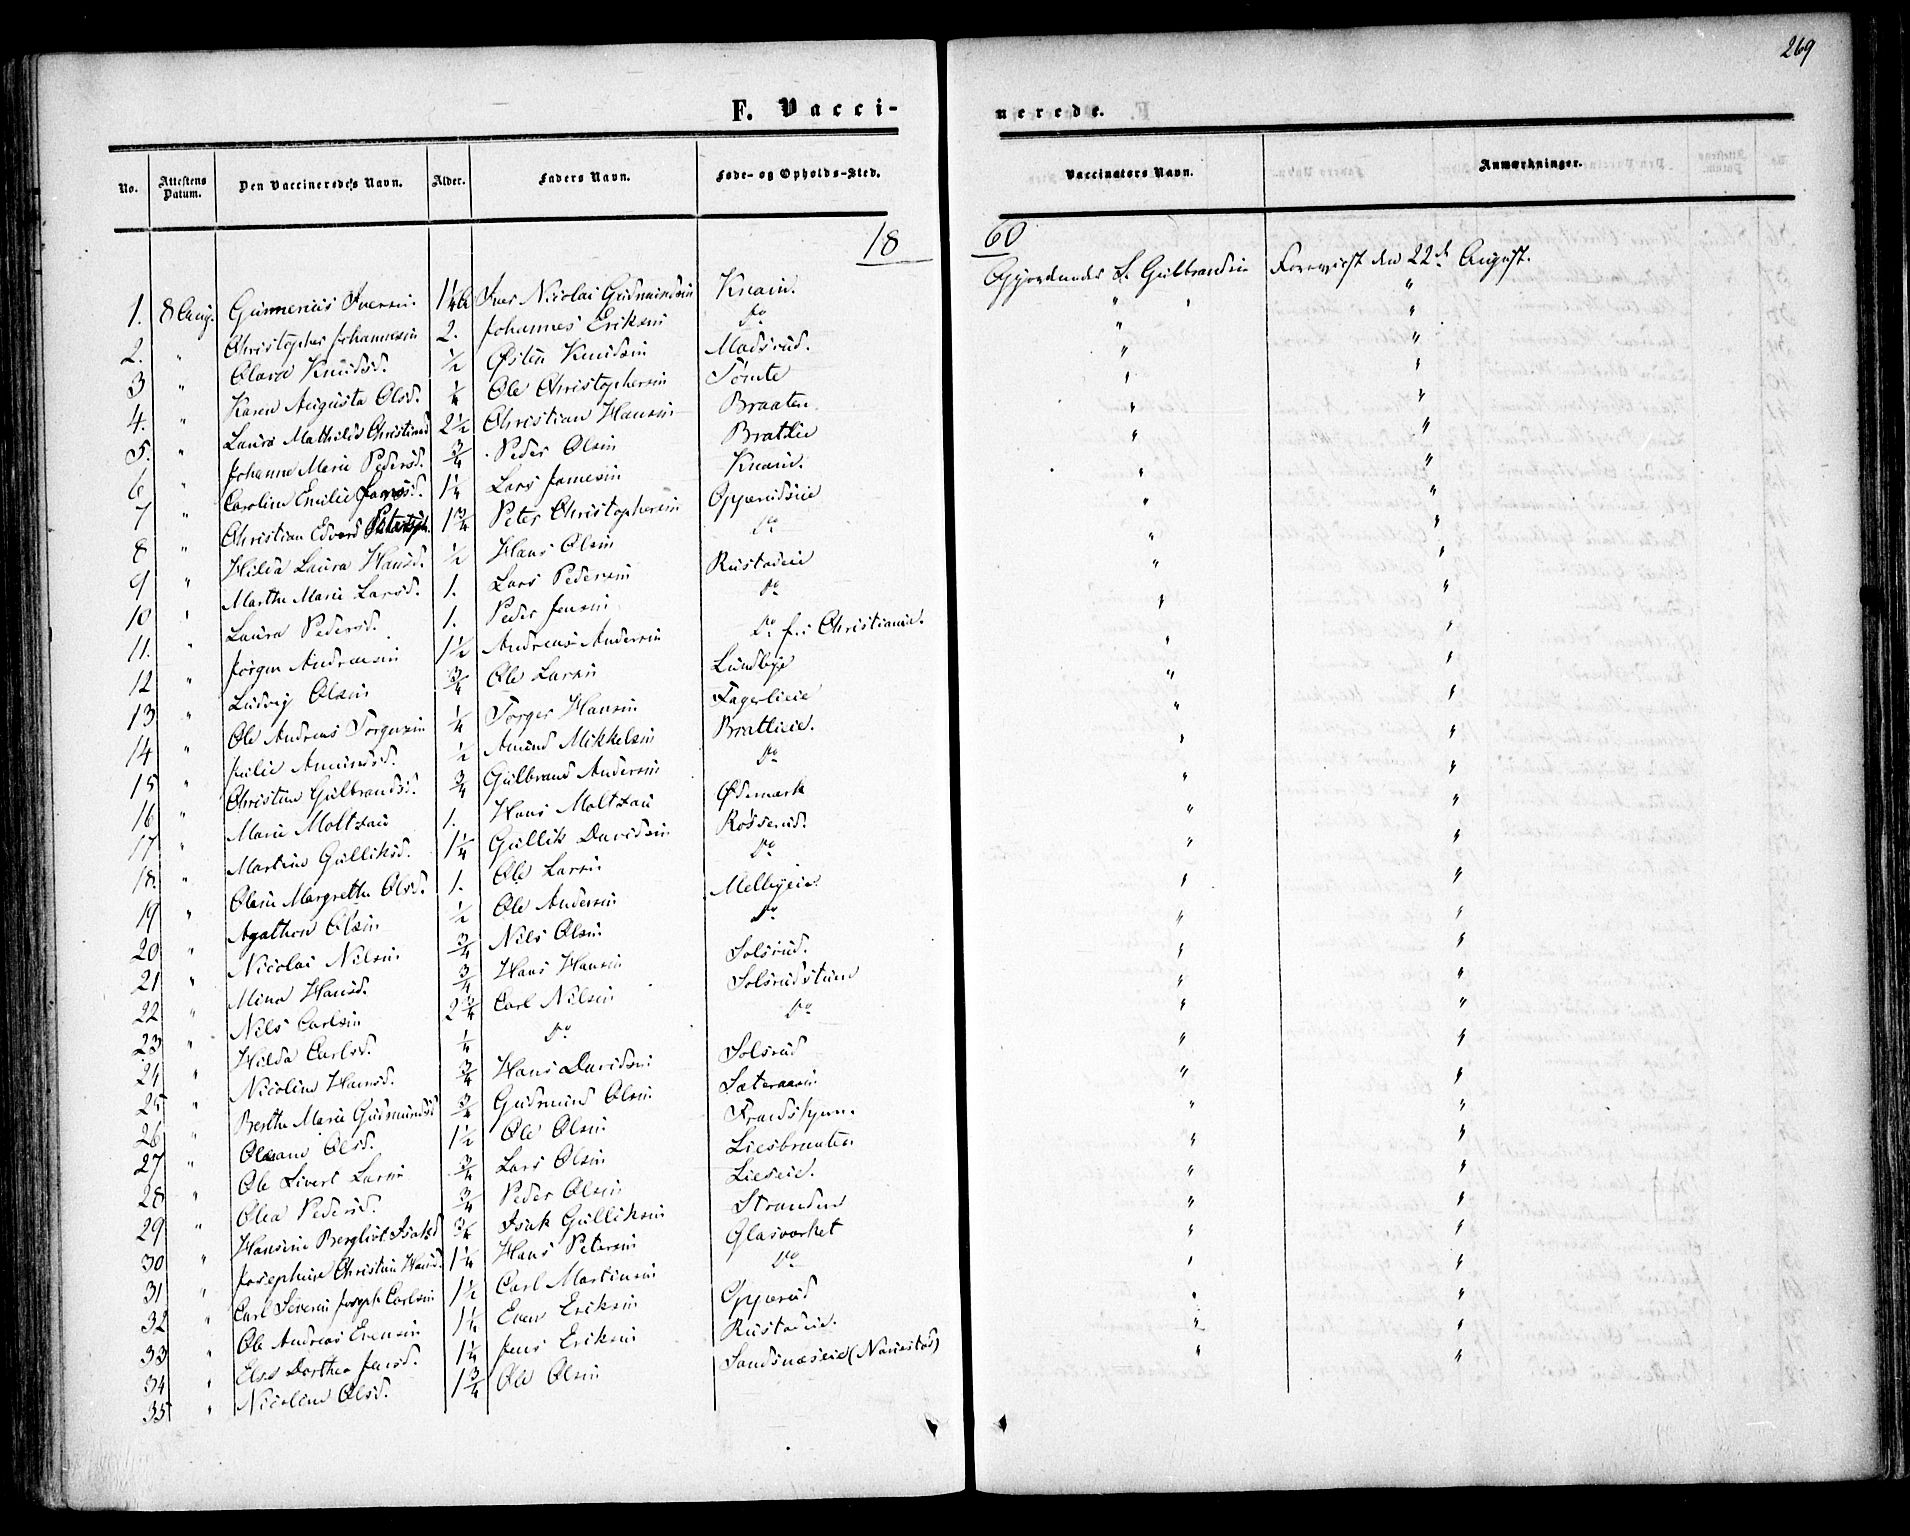 269
F. Vacci-
nerede.
No. Attestens Datum. Den Vaccineredes Navn. Alder. Faders Navn. Føde- og Opholds-Sted. Vaccinators Navn. Anmærkninger.
1860
1. 8 Aug. Gunnerius Iversen. 1 1/4 Iver Nicolai Gudmundsen Knarud. Gjordmoder S. Gulbrandsen Foreviist den 22de August.
2. " Christopher Johannesen 2. Johannes Eriksen do " "
3 " Olava Knudsd. 1/2 Østen Knudsen Madsrud. " "
4. " Karen Augusta Olsd. 1/4 Ole Christophersen Tomte " "
5. " Laura Mathilde Christiansd 2 1/2 Christian Hansen Braaten. " "
6 " Johanne Marie Pedersd. 3/4 Peder Olsen Bratlie " "
7 " Caroline Emilie Larsd. 1 1/4 Lars Jonesen Knarud. " "
8 " Christian Edvard Peters 1 3/4 Peter Christophersen Opperudseie " "
9 " Hilda Laura Hansd. 1/2 Hans Olsen do " "
10 " Marthe Marie Larsd. 1. Lars Pedersen Rustadeie " "
11. " Laura Pedersd. 1. Peder Jensen do " "
12 " Jørgen Andreasen 1 1/2 Andreas Andersen do f. i Christiania. " "
13 " Ludvig Olsen 3/4 Ole Larsen Lundbye " "
14 " Ole Andreas Torgersen 1/4 Torger Hansen Fagerlieie " "
15 " Julie Amundsd. 1/2 Amund Mikkelsen Bratlieie. " "
16 " Christine Gulbrandsd. 3/4 Gulbrand Andersen do " "
17 " Marie Moltzau 1. Hans Moltzau Ødemark " "
18. " Martine Gulliksd. 1 1/4 Gullik Davidsen Rosserud. " "
19 " Oline Margrethe Olsd. 1. Ole Larsen do " "
20 " Agathon Olsen 1/2 Ole Andersen Mellbyeie " "
21 " Nicolai Nilsen. 3/4 Nils Olsen do " "
22 " Mina Hansd. 3/4 Hans Hansen Solsrud. " "
23 " Nils Carlsen 2 3/4 Carl Nilsen Solsrudstuen " "
24 " Hilda Carlsd. 1/4 do do " "
25 " Nicoline Hansd. 3/4 Hans Davidsen Solsrud " "
26 " Berthe Marie Gudmundsd 3/4 Gudmund Olsen Sæteraasen " "
27 " Oleane Olsd. 1 1/2 Ole Olsen " "
28 " Ole Sivert Larsen 3/4 Lars Olsen Liesbraaten " "
29 " Olea Pedersd. 3/4 Peder Olsen Lieseie. " "
30 " Hansine Bergliot Isaksd 3/4 Isak Gulliksen Stranden " "
31 " Josephine Christine Hansd. 1 1/4 Hans Petersen Glasværket " "
32 " Carl Severin Joseph Carlsen 1 1/2 Carl Martinsen do " "
33 " Ole Andreas Evensen 1 1/4 Even Eriksen Opperud " "
34 " Else Dorthea Jensd. 1 1/4 Jens Eriksen Rustadeie. " "
35 " Nicoline Olsd. 1 3/4 Ole Olsen Sandsnæseie " "